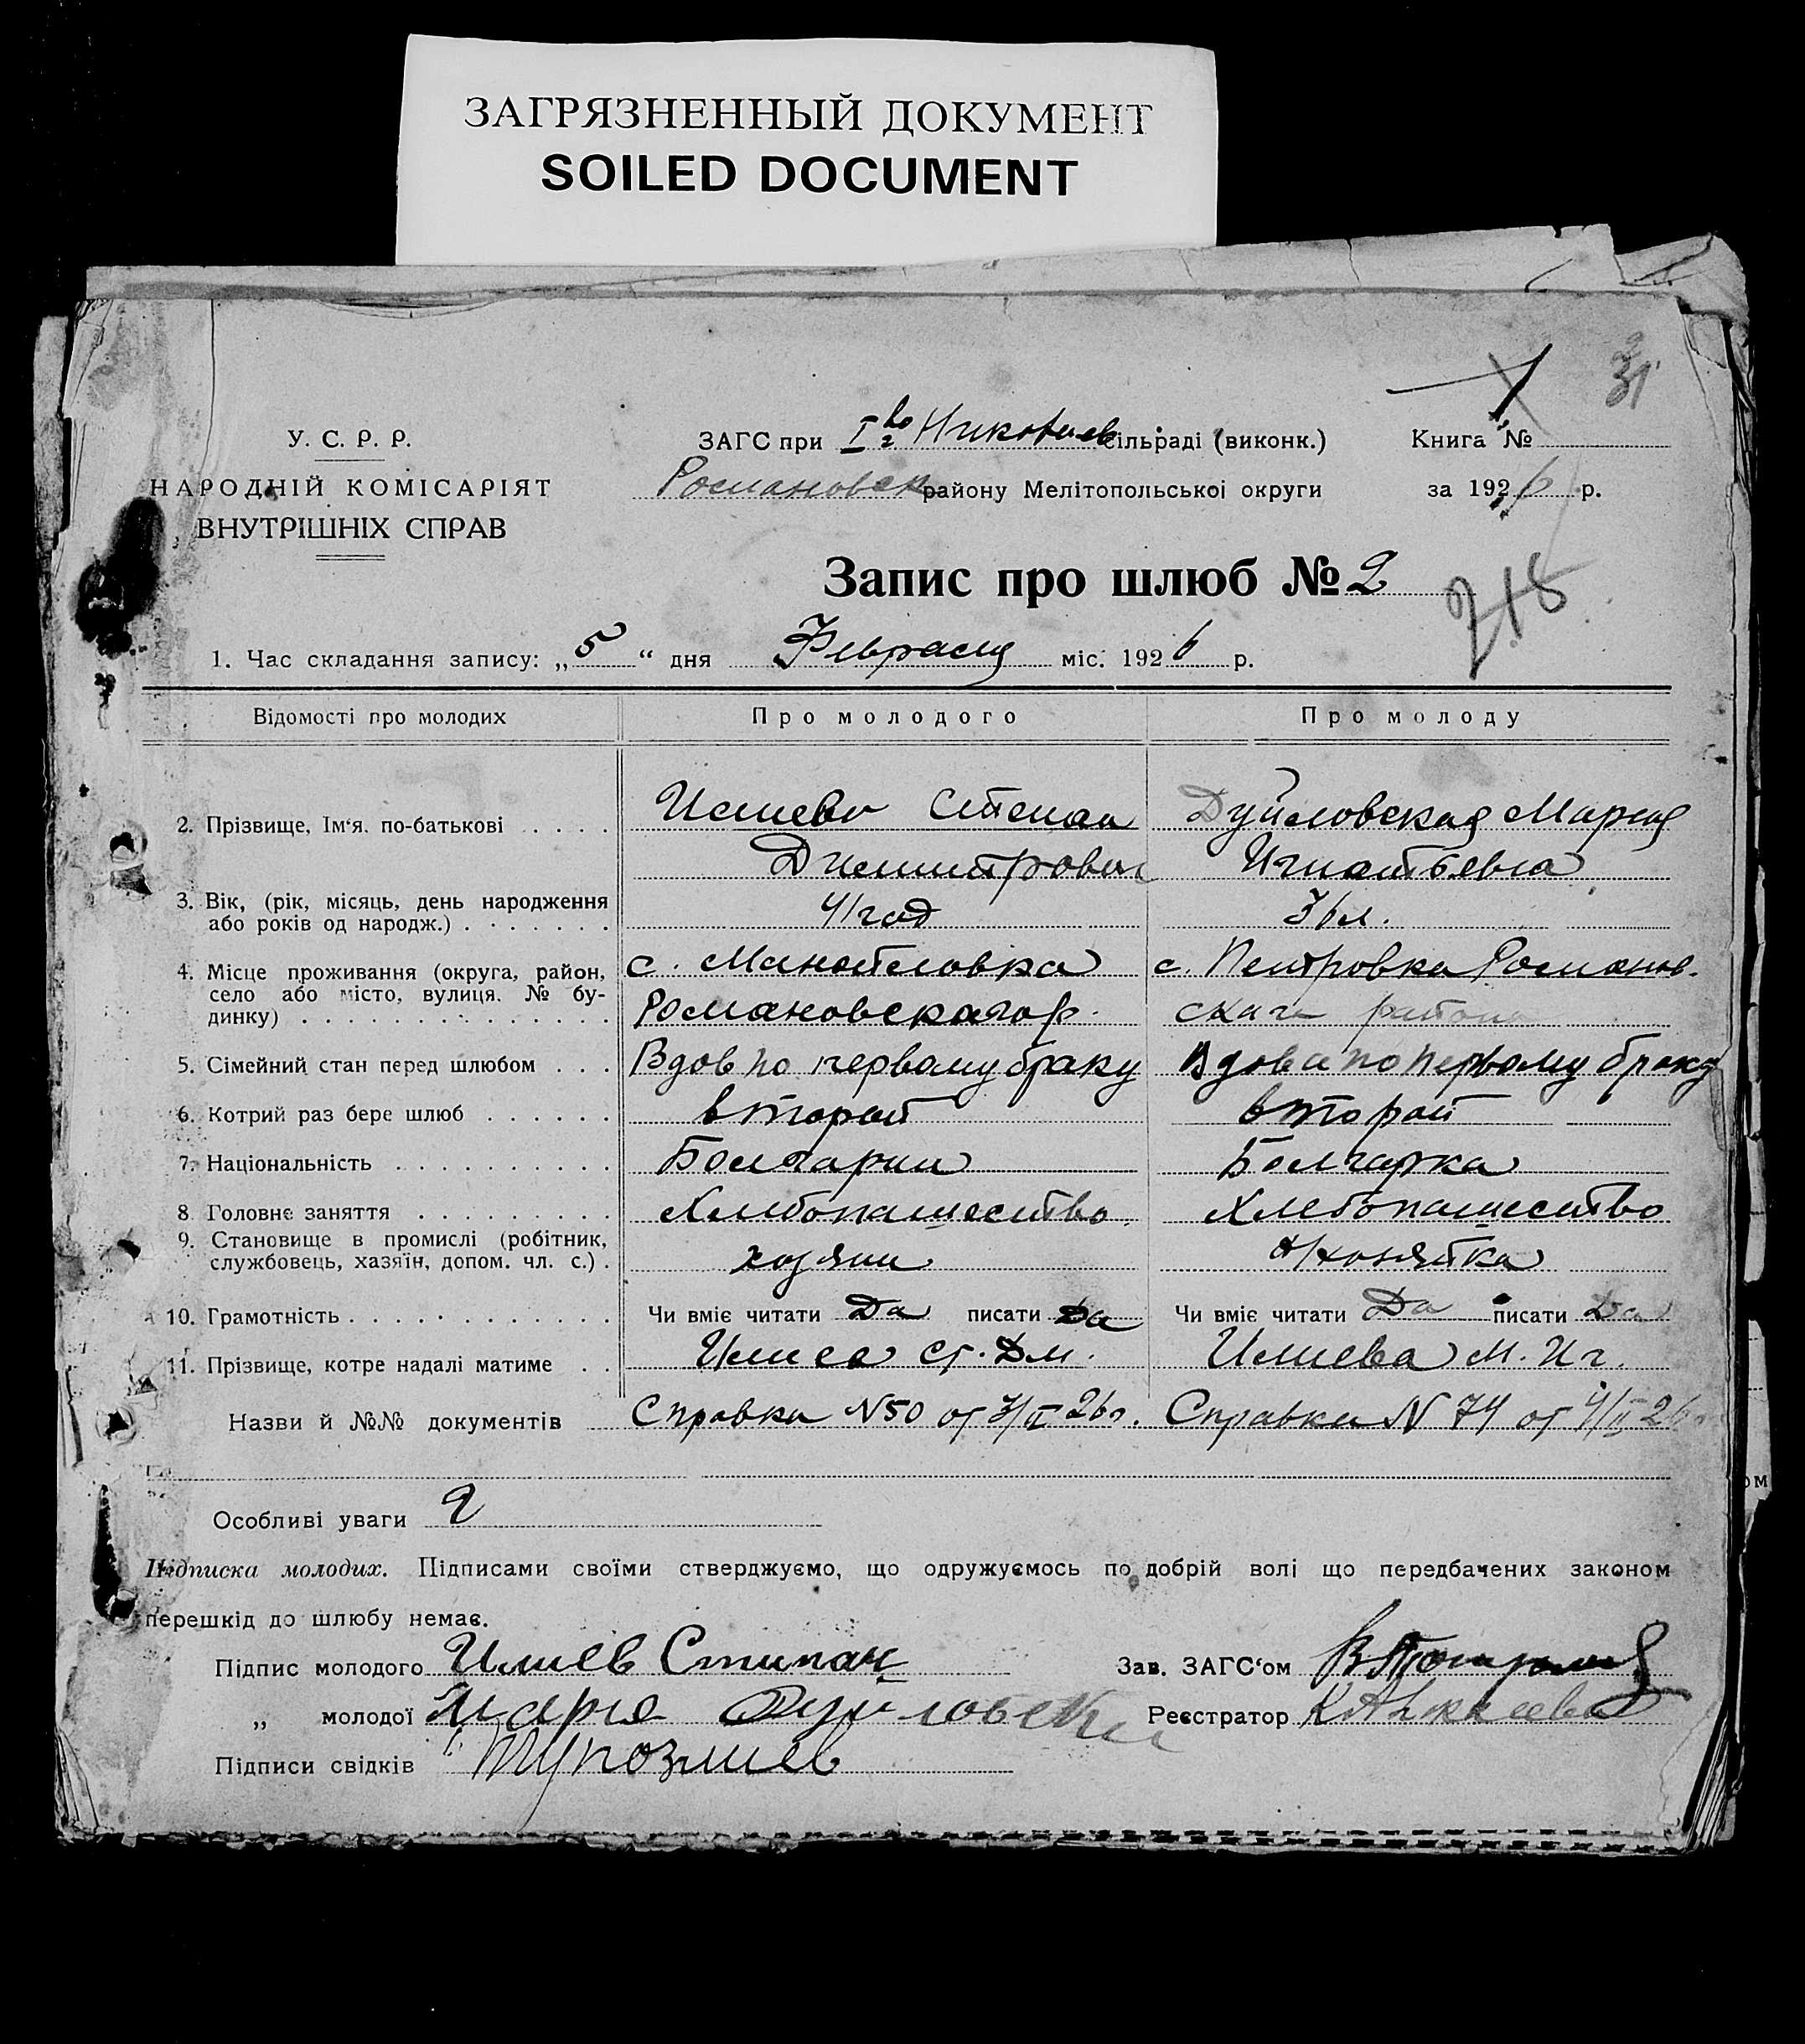 ЗАГРЯЗНЕННЫЙ ДОКУМЕНТ
SOILED DOCUMENT
31
У. С. Р. Р.
НАРОДНІЙ КОМІСАРІЯТ
ВНУТРІШНІХ СПРАВ
ЗАГС при сільраді (виконк.)
Романовск району Мелітопольської округи
Книга №
за 1926 р.
Запис про шлюб № 2
218
1. Час складання запису: „5“ дня Февраля міс. 1926 р.
Відомості про молодих Про молодого Про молоду
2. Прізвище, Ім‘я. по-батькові . . . . Илиев Степан Дуйловская Мария
Димитрович Игнатьевна
3. Вік, (рік, місяць, день народження
або років од народж.) . . . . . . . 41 год 36 л.
4. Місце проживання (округа, район, с. Манойловка с. Петровка Романов-
село або місто, вулиця. № бу-
динку) . . . . . . . . . . . . . Романовскаго р. скаго района
5. Сімейний стан перед шлюбом . . . Вдов по первому браку Вдова по первому браку
6. Котрий раз бере шлюб . . . . . . второй второй
7. Національність . . . . . . . . . . Болгарин Болгарка
8. Головне заняття . . . . . . . . . Хлебопашество Хлебопашество
9. Становище в промислі (робітник,
службовець, хазяїн, допом. чл. с.) . хозяин хозяйка
10. Грамотність . . . . . . . . . . . . Чи вміє читати Да писати Да Чи вміє читати Да писати Да
11. Прізвище, котре надалі матиме . . Илиев Ст. Дм. Илиева М. Иг.
Назви й №№ документів Справка N 50 от 3/II 26 г. Справка N 74 от 4/II 26
Особливі уваги 2
Підписка молодих. Підписами своїми стверджуємо, що одружуємось по добрій волі що передбачених законом
перешкід до шлюбу немає.
Підпис молодого Илиев Стипан Зав. ЗАГС‘ом
„ молодої Мария Дуйловска Реєстратор
Підписи свідків